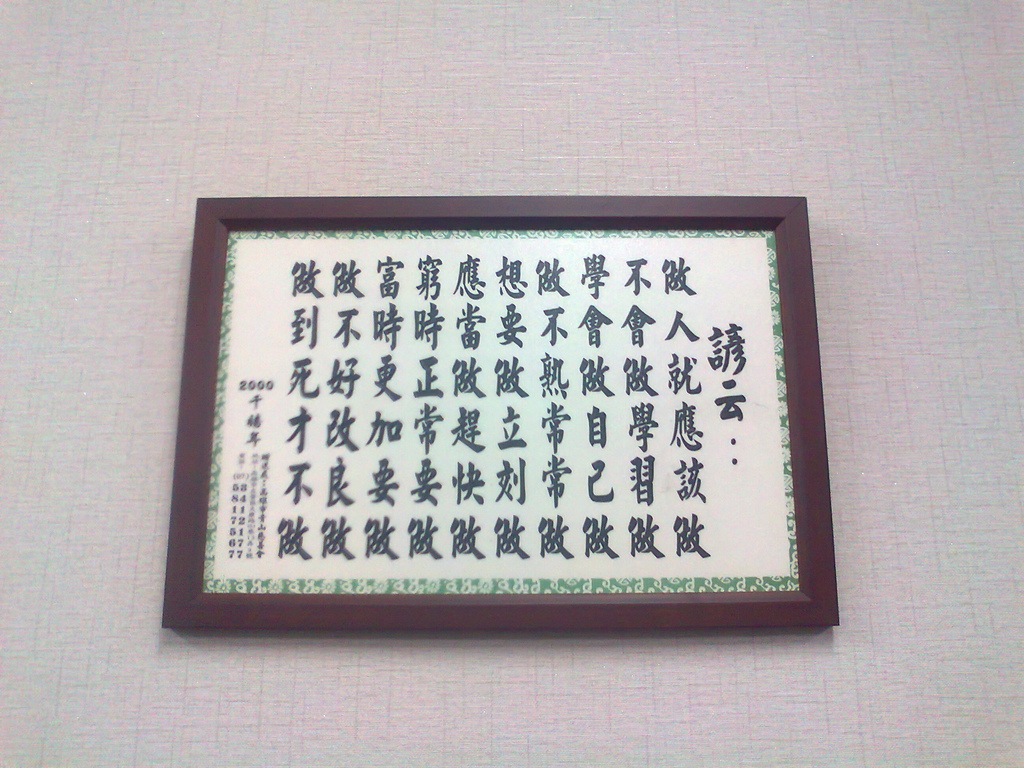 諺云：
做人就應該做
不會做學習做
學會做自己做
做不熟常常做
想要做立刻做
應當做趕快做
窮時正常要做
富時更加要做
做不好改良做
做到死才不做
2000千禧年
高雄市青山慈善會
5341217
5817567